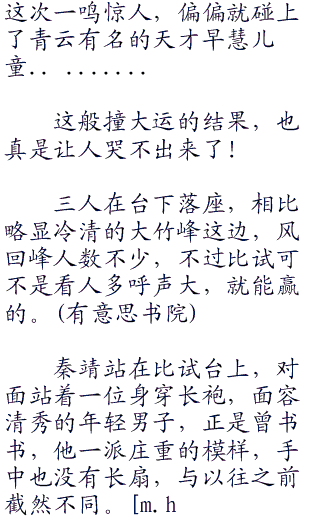 这次一鸣惊人，偏偏就碰上
了青云有名的天才早慧儿
童.. .......
这般撞大运的结果，也
真是让人哭不出来了！
三人在台下落座，相比
略显冷清的大竹峰这边，风
回峰人数不少，不过比试可
不是看人多呼声大，就能赢
的。(有意思书院)
秦靖站在比试台上，对
面站着一位身穿长袍，面容
清秀的年轻男子，正是曾书
书，他一派庄重的模样，手
中也没有长扇，与以往之前
截然不同。[m.h